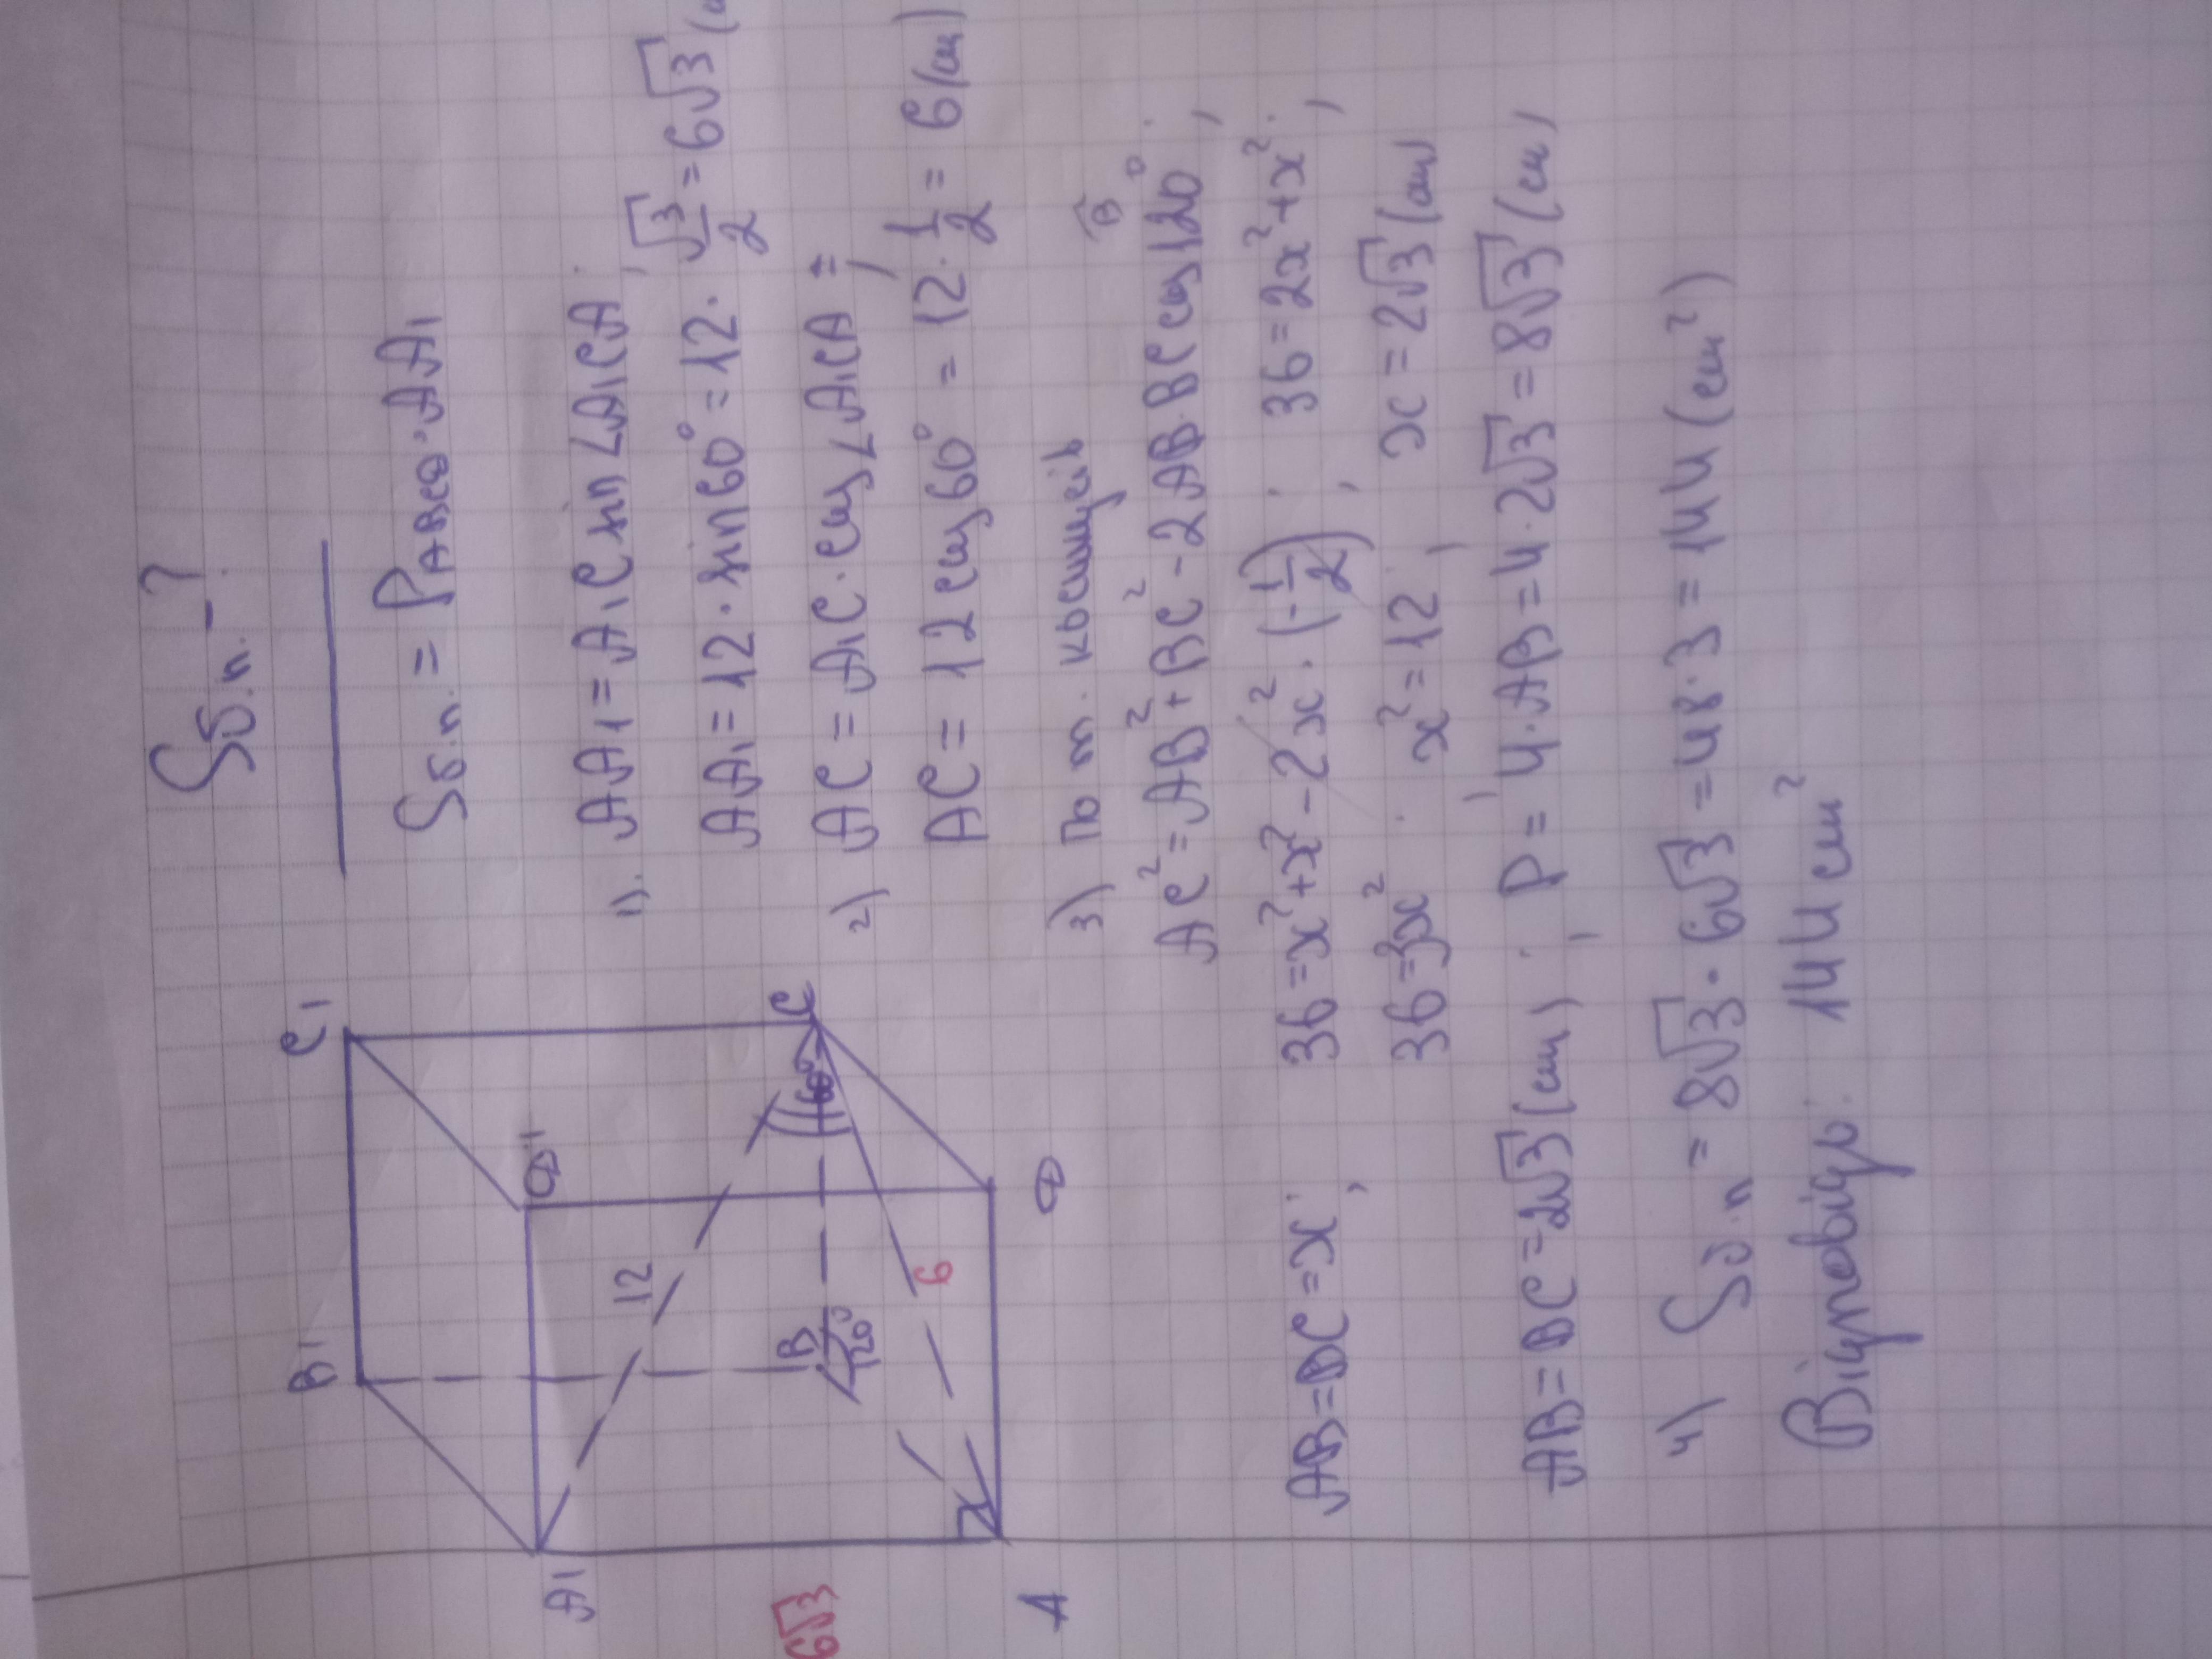 Sб.п. - ?
Sб.п. = PABCD · AA1
1). AA1 = A1C sin ∠A1CA;
AA1 = 12 · sin 60° = 12 · √3/2 = 6√3 (
2) AC = A1C · cos ∠A1CA;
AC = 12 cos 60° = 12 · 1/2 = 6 (см)
3) По т. косинусів
AC² = AB² + BC² - 2AB·BC cos 120°;
B
AB = BC = x;
36 = x² + x² - 2x² · (-1/2); 36 = 2x² + x²;
36 = 3x²; x² = 12; x = 2√3 (см)
AB = BC = 2√3 (см); P = 4·AB = 4·2√3 = 8√3 (см)
4) Sб.п = 8√3 · 6√3 = 48·3 = 144 (см²)
Відповідь: 144 см²
B1
C1
A1
D1
12
60°
C
B
120°
6
6√3
A
D